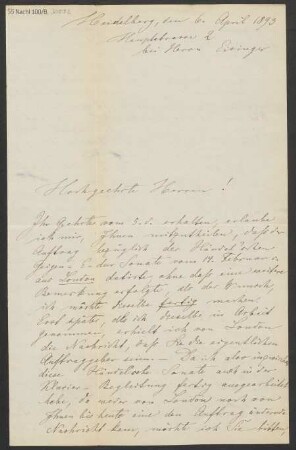 55 Nachl 100/B
Heidelberg, den 6. April 1893
Hauptstrasse 2
bei Herrn
Hochgeehrte Herren!
Ihr Geehrtes vom 5. d. erhalten, erlaube
ich mir, Ihnen mitzutheilen, daß der
Auftrag bezüglich der Händel'schen
Sonate vom 14. Februar
aus London datirte, ohne daß eine weitere
Bemerkung erfolgte, als der Wunsch,
ich möchte dieselbe fertig machen.
Erst später, als ich dieselbe in Arbeit
genommen, erhielt ich von London
die Nachricht, daß Sie die eigentlichen
Auftraggeber seien. – Dank aber
diese Händel'sche Sonate auch in der
Klavier-Begleitung fertig ausgearbeitet
habe, da weder von London noch von
Ihnen bis heute eine den Auftrag
Nachricht kam, möchte ich Sie bitten,